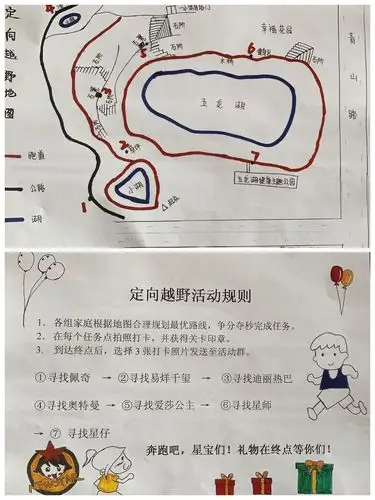 定向越野地图
4
5
石阶
石阶
石凳
石阶
3
石凳
2
石阶
木桥
6
幸福花园
青山路
五龙湖
7
五龙湖健康主题公园
小湖
1
跑道
公路
湖
定向越野活动规则
1. 各组家庭根据地图合理规划最优路线，争分夺秒完成任务。
2. 在每个任务点拍照打卡，并获得关卡印章。
3. 到达终点后，选择3张打卡照片发送至活动群。
①寻找佩奇 → ②寻找易烊千玺 → ③寻找迪丽热巴
④寻找奥特曼 → ⑤寻找爱莎公主 → ⑥寻找星师
→ ⑦ 寻找星仔
奔跑吧，星宝们！礼物在终点等你们！